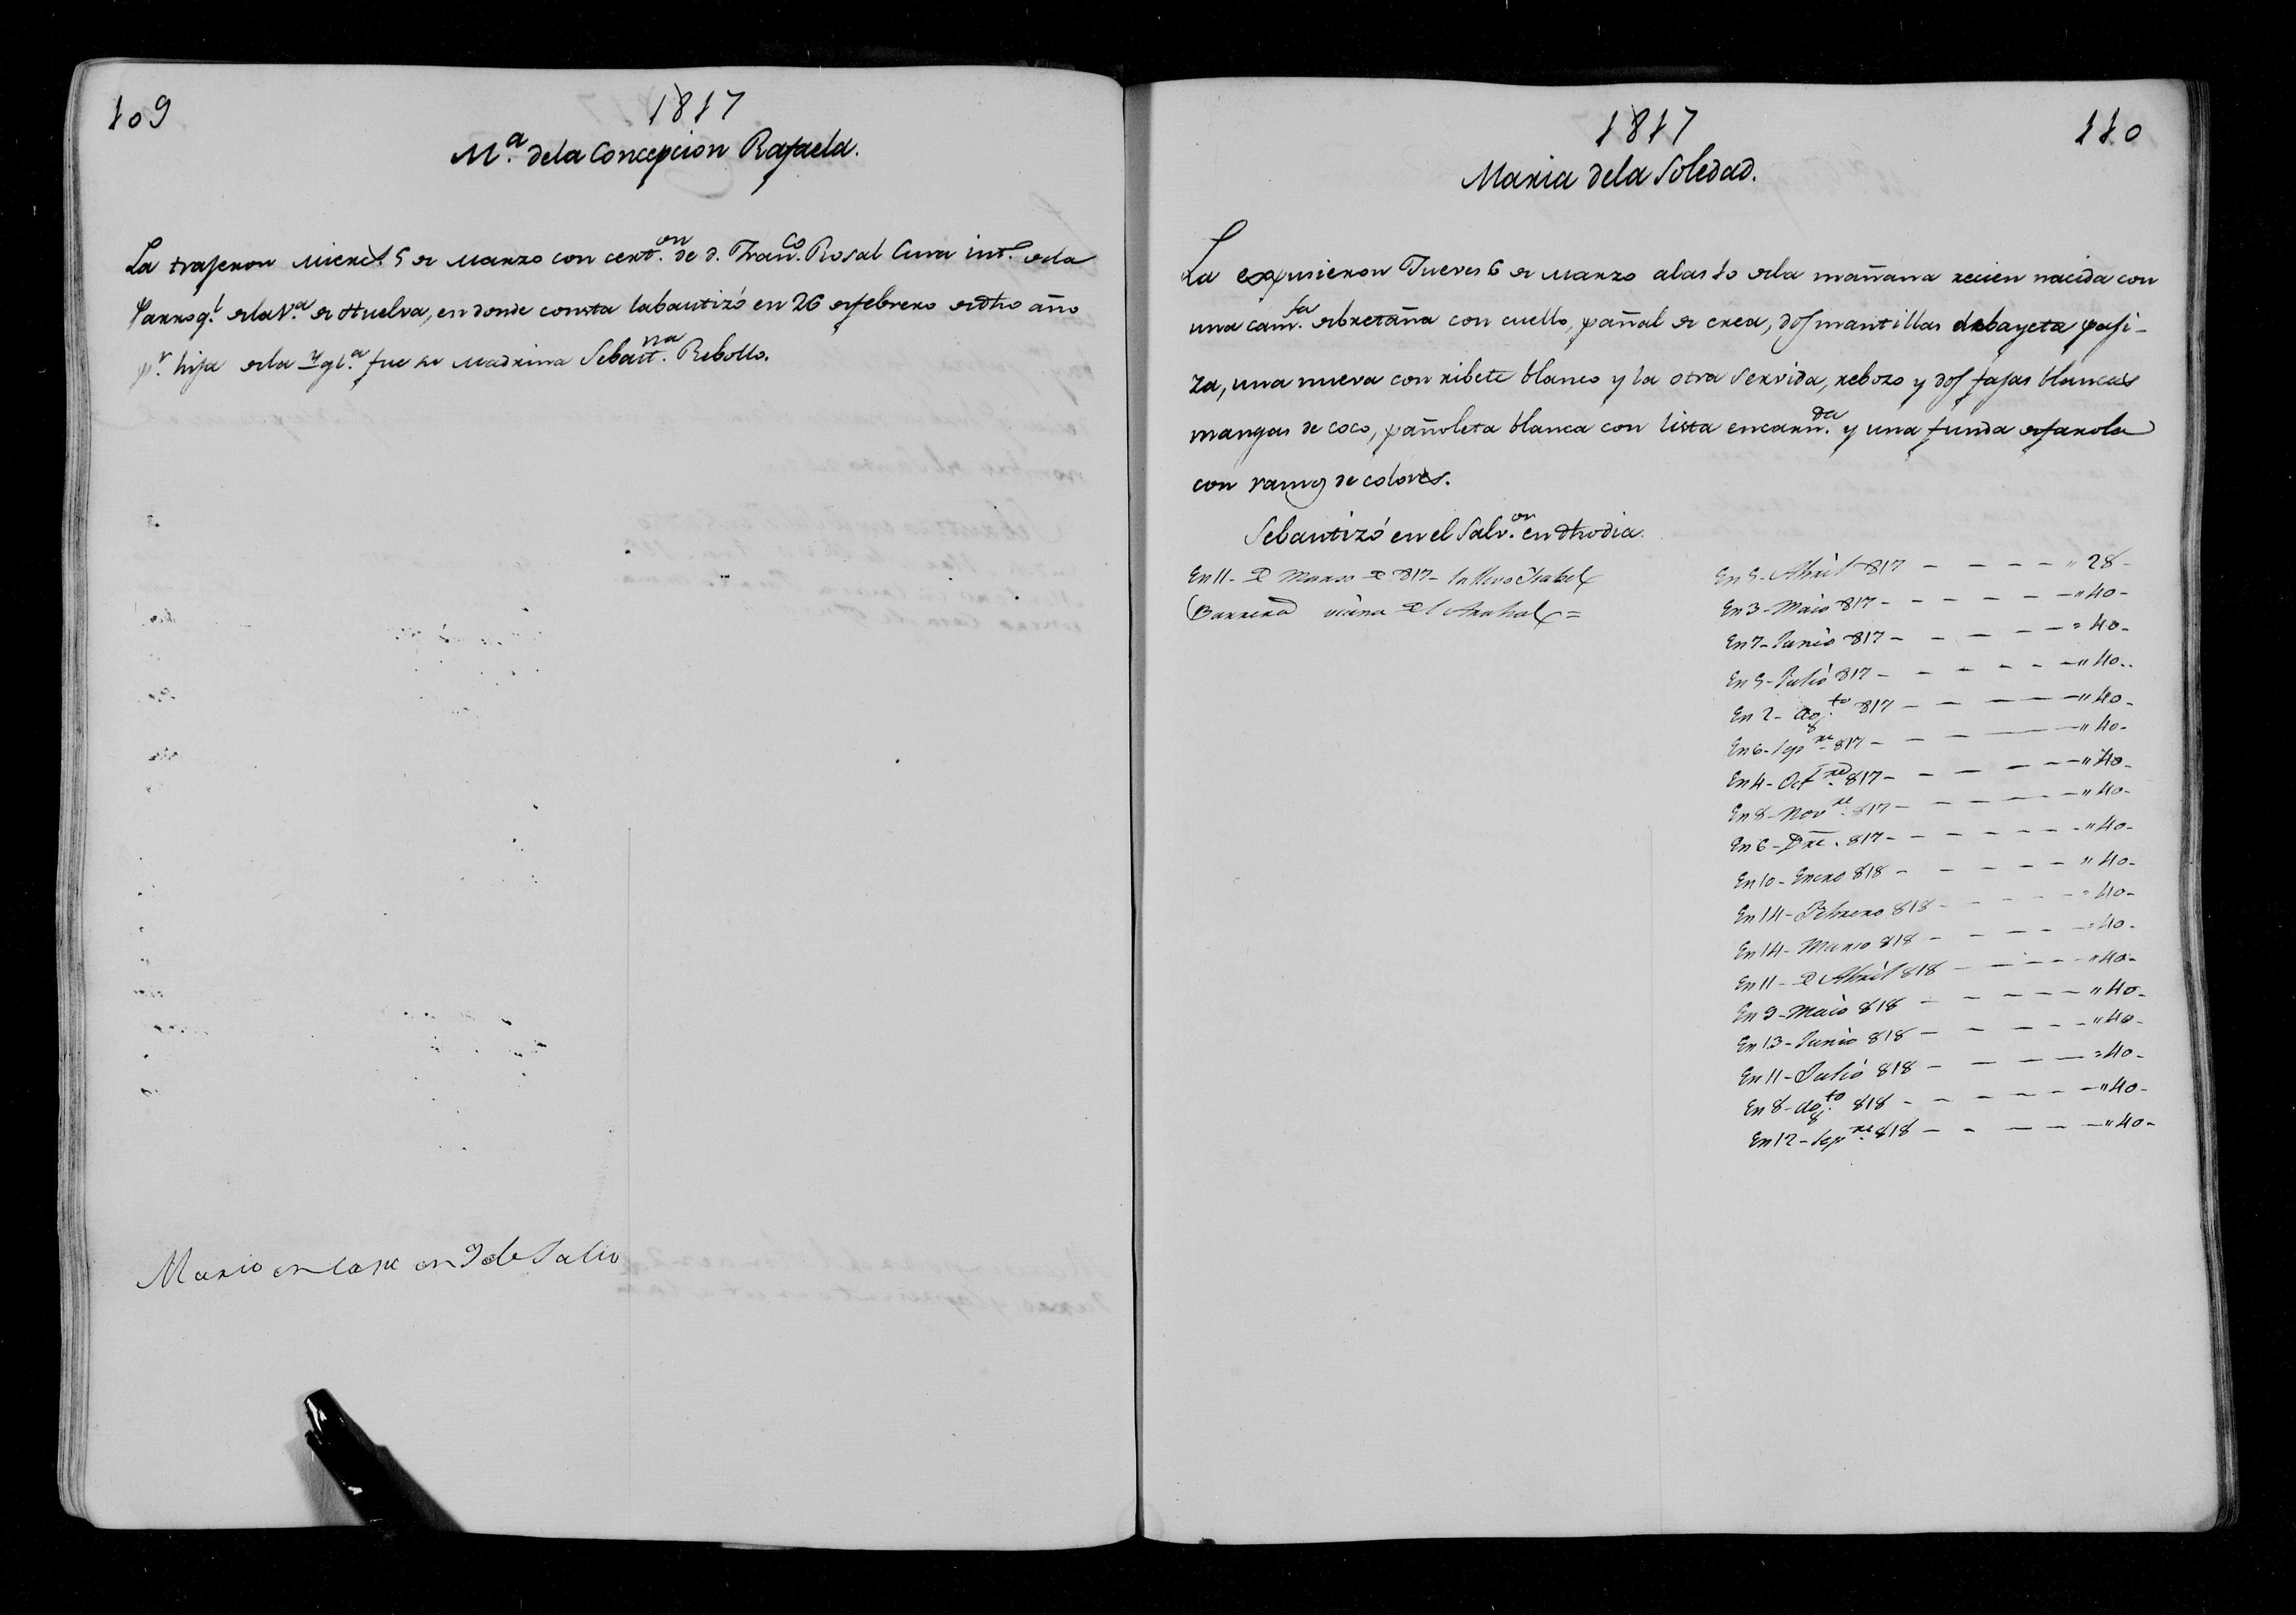 109
1817
M.ª dela Concepcion Rafaela.
La trajeron Mierc.s 5 de Marzo con cert.on de d. Fran.co Rosal Cura int.o dela
Parroq.l dela V.a de Huelva, en donde consta labautizó en 26 defebrero dedho año
p.r hija dela Ygl.a fue su Madrina Sebast.na Rebollo.
Murio en casa en 9 de Julio
1817
110
Maria dela Soledad.
La expusieron Jueves 6 de Marzo alas 10 dela mañana recien nacida con
una cam.sa debretaña con cuello, pañal de crea, dos mantillas debayeta paji-
za, una nueva con ribete blanco y la otra servida, rebozo y dos fajas blancas
mangas de coco, pañoleta blanca con lista encarn.da y una funda defarola
con ramos de colores.
Sebautizó en el Salv.or en dho dia.
En 11- de Marzo de 817- la llevo Isabel
Barrera vecina del Arahal =
En 5- Abril 817 - - - - " 28-
En 3- Maio 817 - - - - - " 40-
En 7- Junio 817 - - - - - = 40-
En 5- Julio 817 - - - - - " 40-
En 2- Ag.to 817 - - - - - " 40-
En 6- Sep.re 817 - - - - - " 40-
En 4- Oct.re 817 - - - - - " 40-
En 8- Nov.re 817 - - - - - " 40-
En 6- Dre. 817 - - - - - - " 40-
En 10- Enero 818 - - - - - " 40-
En 14- Febrero 818 - - - - - = 40-
En 14- Marzo 818 - - - - - = 40-
En 11- de Abril 818 - - - - - " 40-
En 9- Maio 818 - - - - - " 40-
En 13- Junio 818 - - - - - " 40-
En 11- Julio 818 - - - - - = 40-
En 8- Ag.to 818 - - - - - - " 40-
En 12- Sep.re 818 - - - - - " 40-